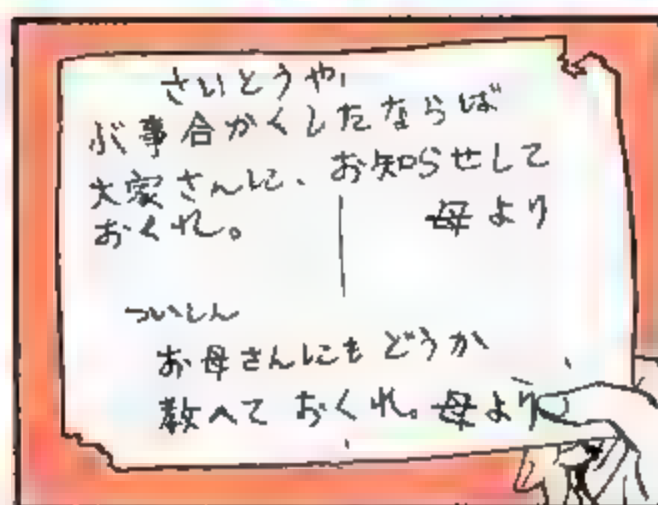 さいとうや、
ぶ事合かくしたならば
大家さんに、お知らせして
おくれ。
母より
ついしん
お母さんにもどうか
教へておくれ。母より